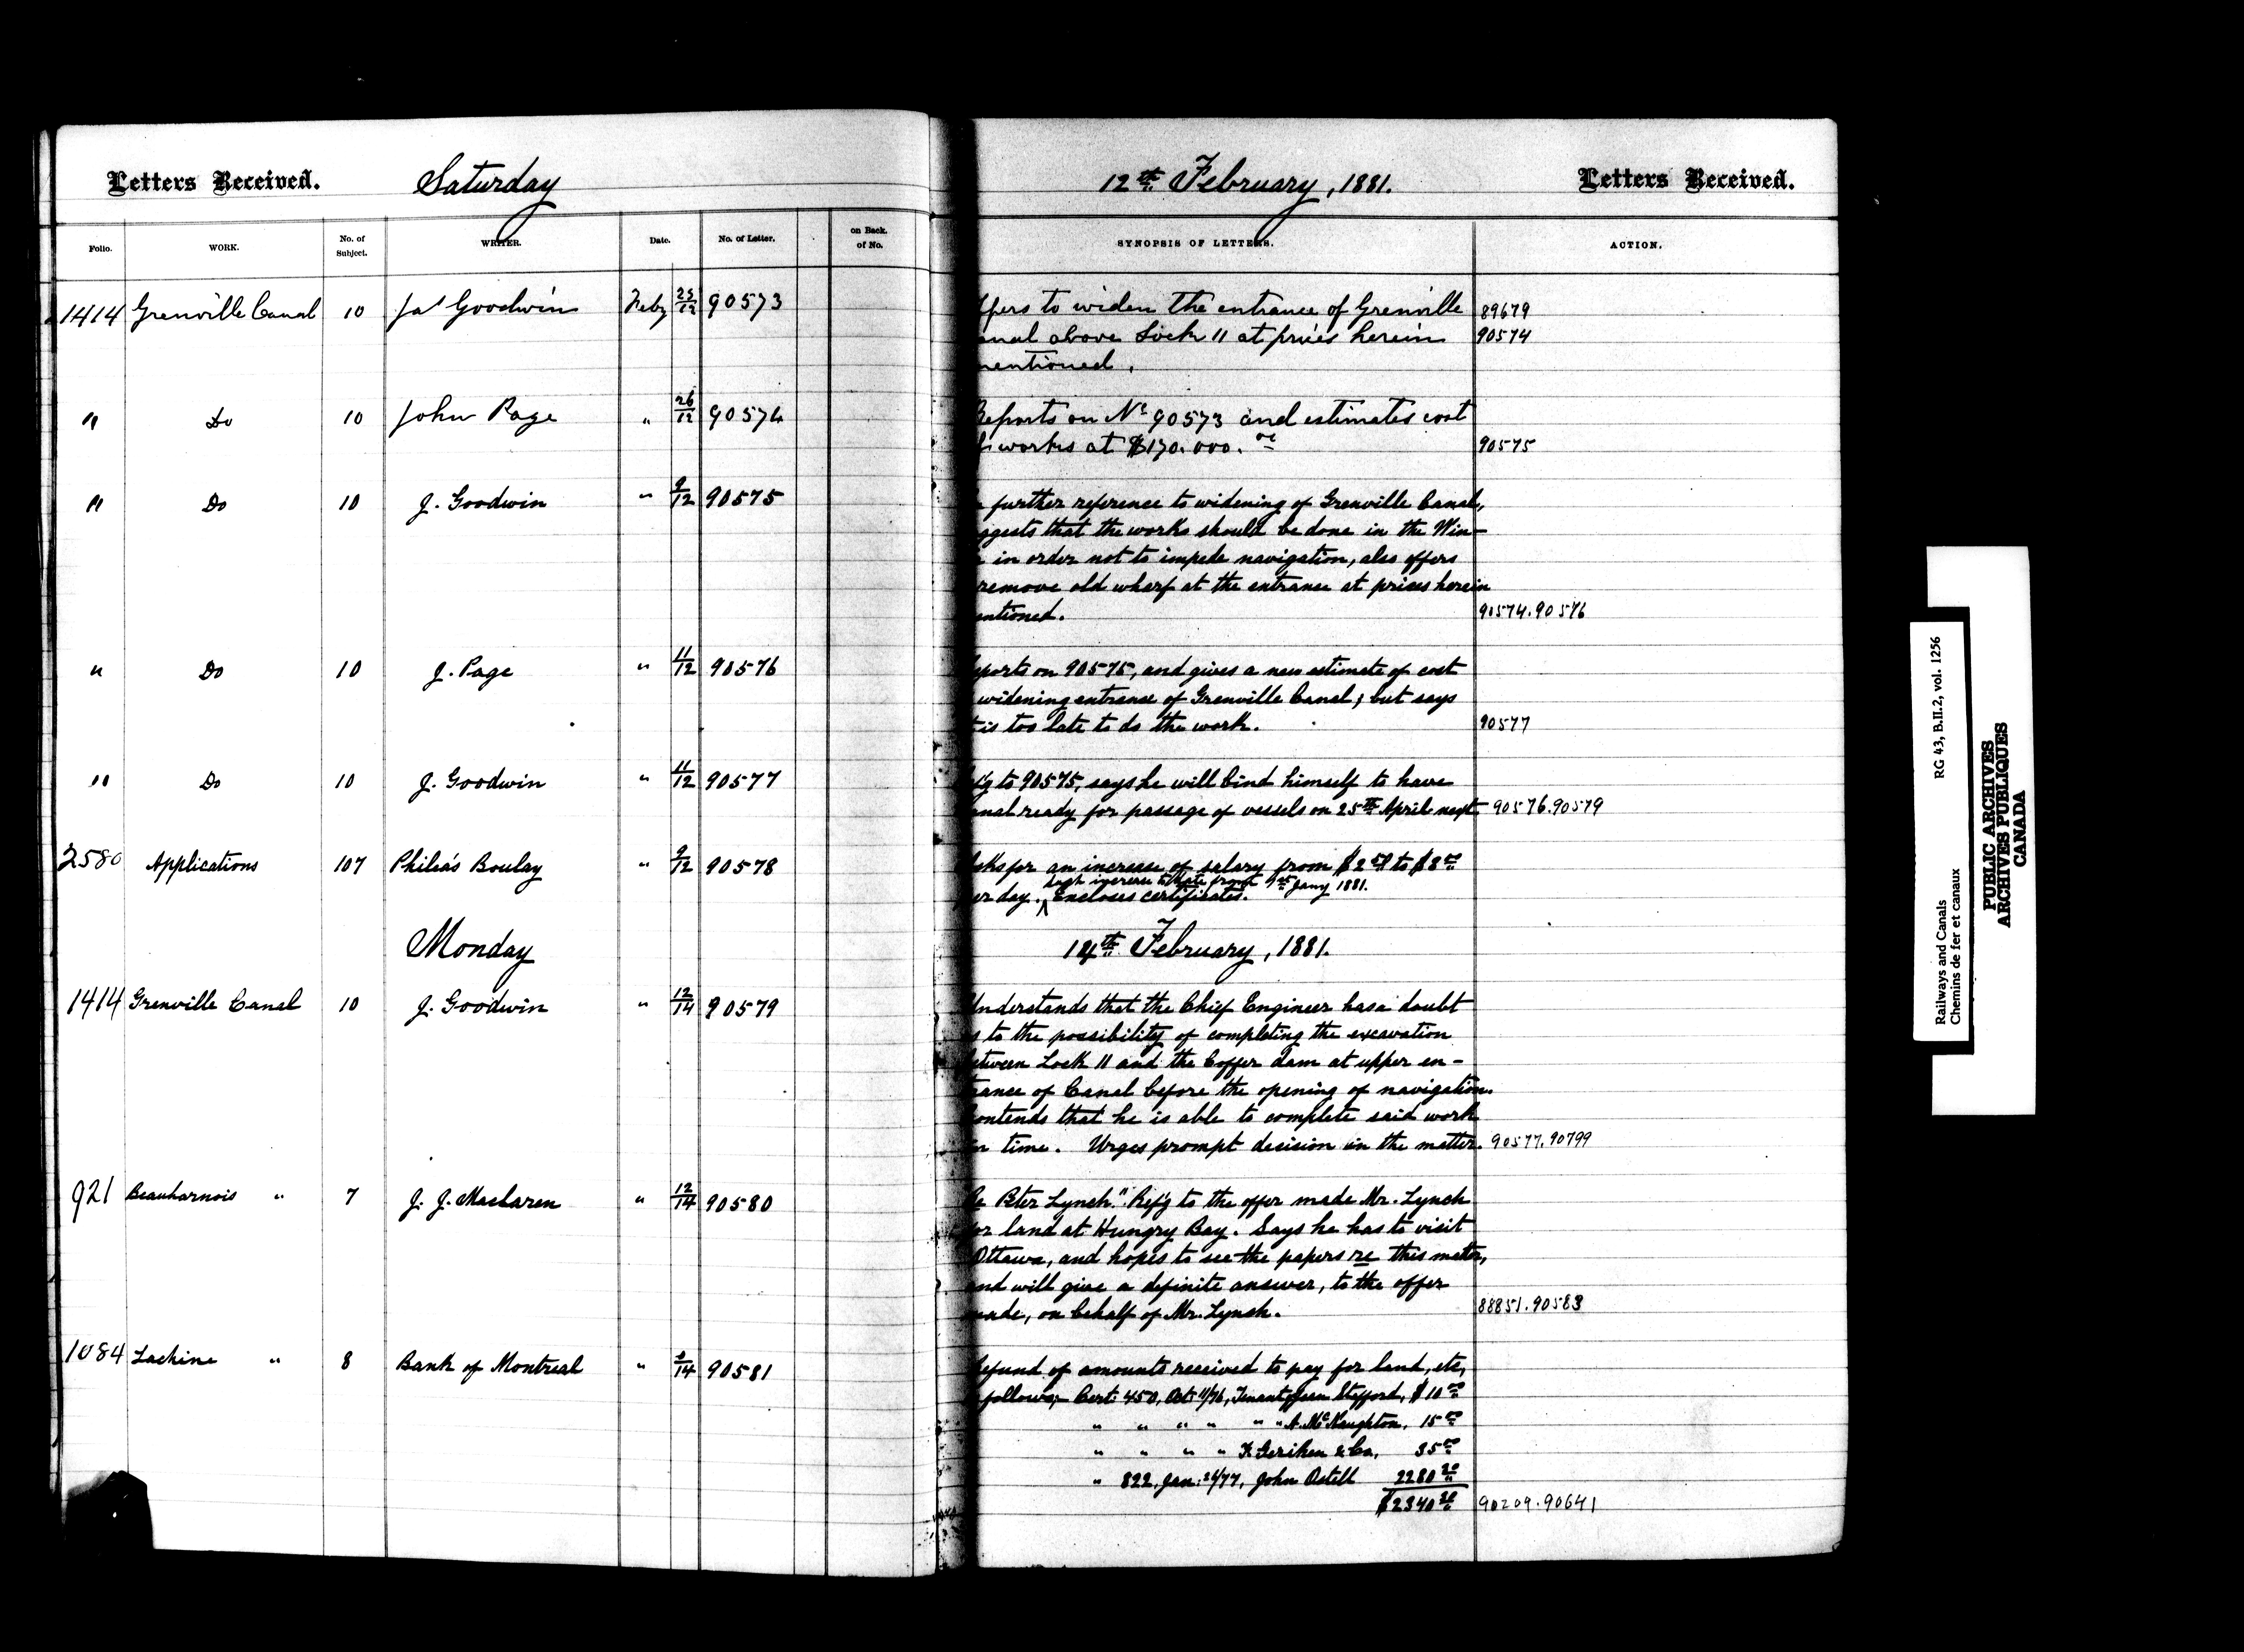 Letters Received. Saturday 12th February, 1881. Letters Received.
Folio. WORK. No. of Subject. WRITER. Date. No. of Letter. on Back. of No. SYNOPSIS OF LETTERS. ACTION.
1414 Grenville Canal 10 Jas Goodwin Feby 25/12 90573 ffers to widen the entrance of Grenville 89679
anal above Lock 11 at prices herein 90574
mentioned.
" Do 10 John Page " 26/12 90574 Reports on No 90573 and estimates cost
f works at $170.000.00 90575
" Do 10 J. Goodwin " 9/12 90575 further reference to widening of Grenville Canal,
ggests that the works should be done in the Win-
in order not to impede navigation, also offers
remove old wharf at the entrance at prices herein
entioned. 90574.90576
" Do 10 J. Page " 11/12 90576 eports on 90575, and gives a new estimate of cost
widening entrance of Grenville Canal; but says
t is too late to do the work. 90577
" Do 10 J. Goodwin " 11/12 90577 ef'g to 90575, says he will bind himself to have
anal ready for passage of vessels on 25th April next. 90576.90579
2580 Applications 107 Philéas Boulay " 9/12 90578 Asks for an increase of salary from $2.50 to $3.00
such increase to date from 1st Jany 1881.
per day. Encloses certificates.
Monday 14th February, 1881.
1414 Grenville Canal 10 J. Goodwin " 12/14 90579 Understands that the Chief Engineer has a doubt
s to the possibility of completing the excavation
etween Lock 11 and the Coffer dam at upper en-
rance of Canal before the opening of navigation.
ontends that he is able to complete said work
in time. Urges prompt decision in the matter. 90577.90799
921 Beauharnois " 7 J. J. Maclaren " 12/14 90580 Re Peter Lynch." Ref'g to the offer made Mr. Lynch
for land at Hungry Bay. Says he has to visit
Ottawa, and hopes to see the papers re this matter,
and will give a definite answer, to the offer
made, on behalf of Mr. Lynch. 88851.90583
1084 Lachine " 8 Bank of Montreal " /14 90581 Refund of amounts received to pay for land, etc,
follows;- Cert: 450, Oct: 11/76, Tenant of Jean Stefford, $10.00
" " " " " " A. McNaughton, 15.00
" " " " F. Geriken & Co, 35.00
" 822, Jan: 26/77, John Ostell 2280.20
$2340.20 90209.90641
Railways and Canals RG 43, B.II.2, vol. 1256
Chemins de fer et canaux
PUBLIC ARCHIVES
ARCHIVES PUBLIQUES
CANADA